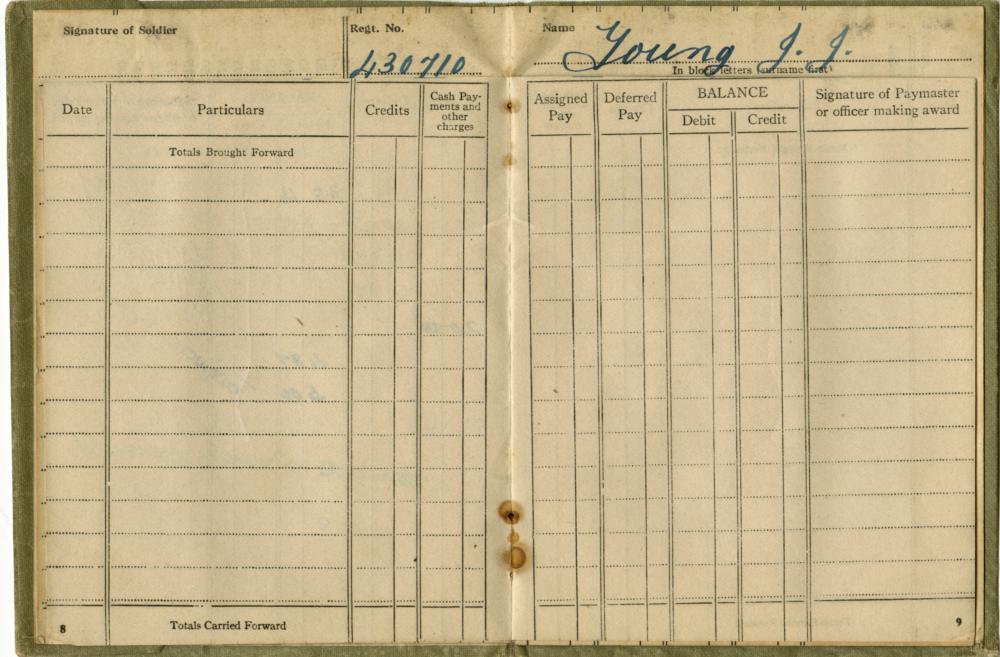 Signature of Soldier
Regt. No.
430710
Name
Young J. J.
In block letters (surname first)
Date
Particulars
Credits
Cash Pay-
ments and
other
charges
Assigned
Pay
Deferred
Pay
BALANCE
Debit
Credit
Signature of Paymaster
or officer making award
Totals Brought Forward
8
Totals Carried Forward
9